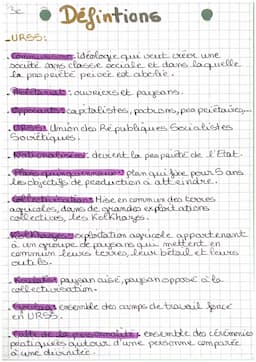 3e
Défintions
_URSS:
- Communisme: idéologie qui veut créer une
société sans classe sociale et dans laquelle
la propriété privée est abolie.
- Prolétariat: ouvriers et paysans.
- Opposants: capitalistes, patrons, propriétaires,...
- URSS: Union des Républiques Socialistes
Soviétiques.
- Nationalisation: devient la propriété de l'État.
- Plans quinquennaux: plan qui fixe pour 5 ans
les objectifs de production à atteindre.
- Collectivisation: Mise en commun des terres
agricoles, dans de grandes exploitations
collectives, les Kolkhozes.
- Kolkhozes: exploitation agricole appartenant
à un groupe de paysans qui mettent en
commun leurs terres, leur bétail et leurs
outils.
- Koulaks: paysan aisé, paysan opposé à la
collectivisation.
- Goulag: ensemble des camps de travail forcé
en URSS.
- Culte de la personnalité: ensemble des cérémonies
pratiquées autour d'une personne comparée
à une divinité.